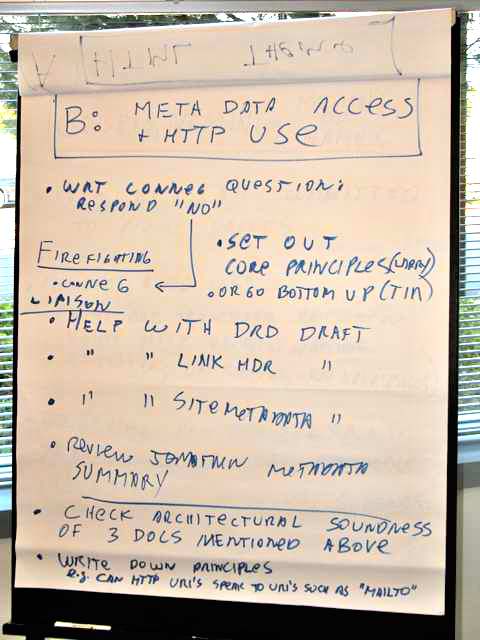 B: META DATA ACCESS
+ HTTP USE
• WRT CONNEG QUESTION:
RESPOND "NO"
FIREFIGHTING
• CONNEG
• SET OUT
CORE PRINCIPLES (LARRY)
• OR GO BOTTOM UP (TIM)
LIAISON
• HELP WITH DRD DRAFT
• " " LINK HDR "
• " " SITEMETADATA "
• REVIEW JONATHAN METADATA
SUMMARY
• CHECK ARCHITECTURAL SOUNDNESS
OF 3 DOCS MENTIONED ABOVE
• WRITE DOWN PRINCIPLES
e.g. CAN HTTP URI'S SPEAK TO URI'S SUCH AS "MAILTO"